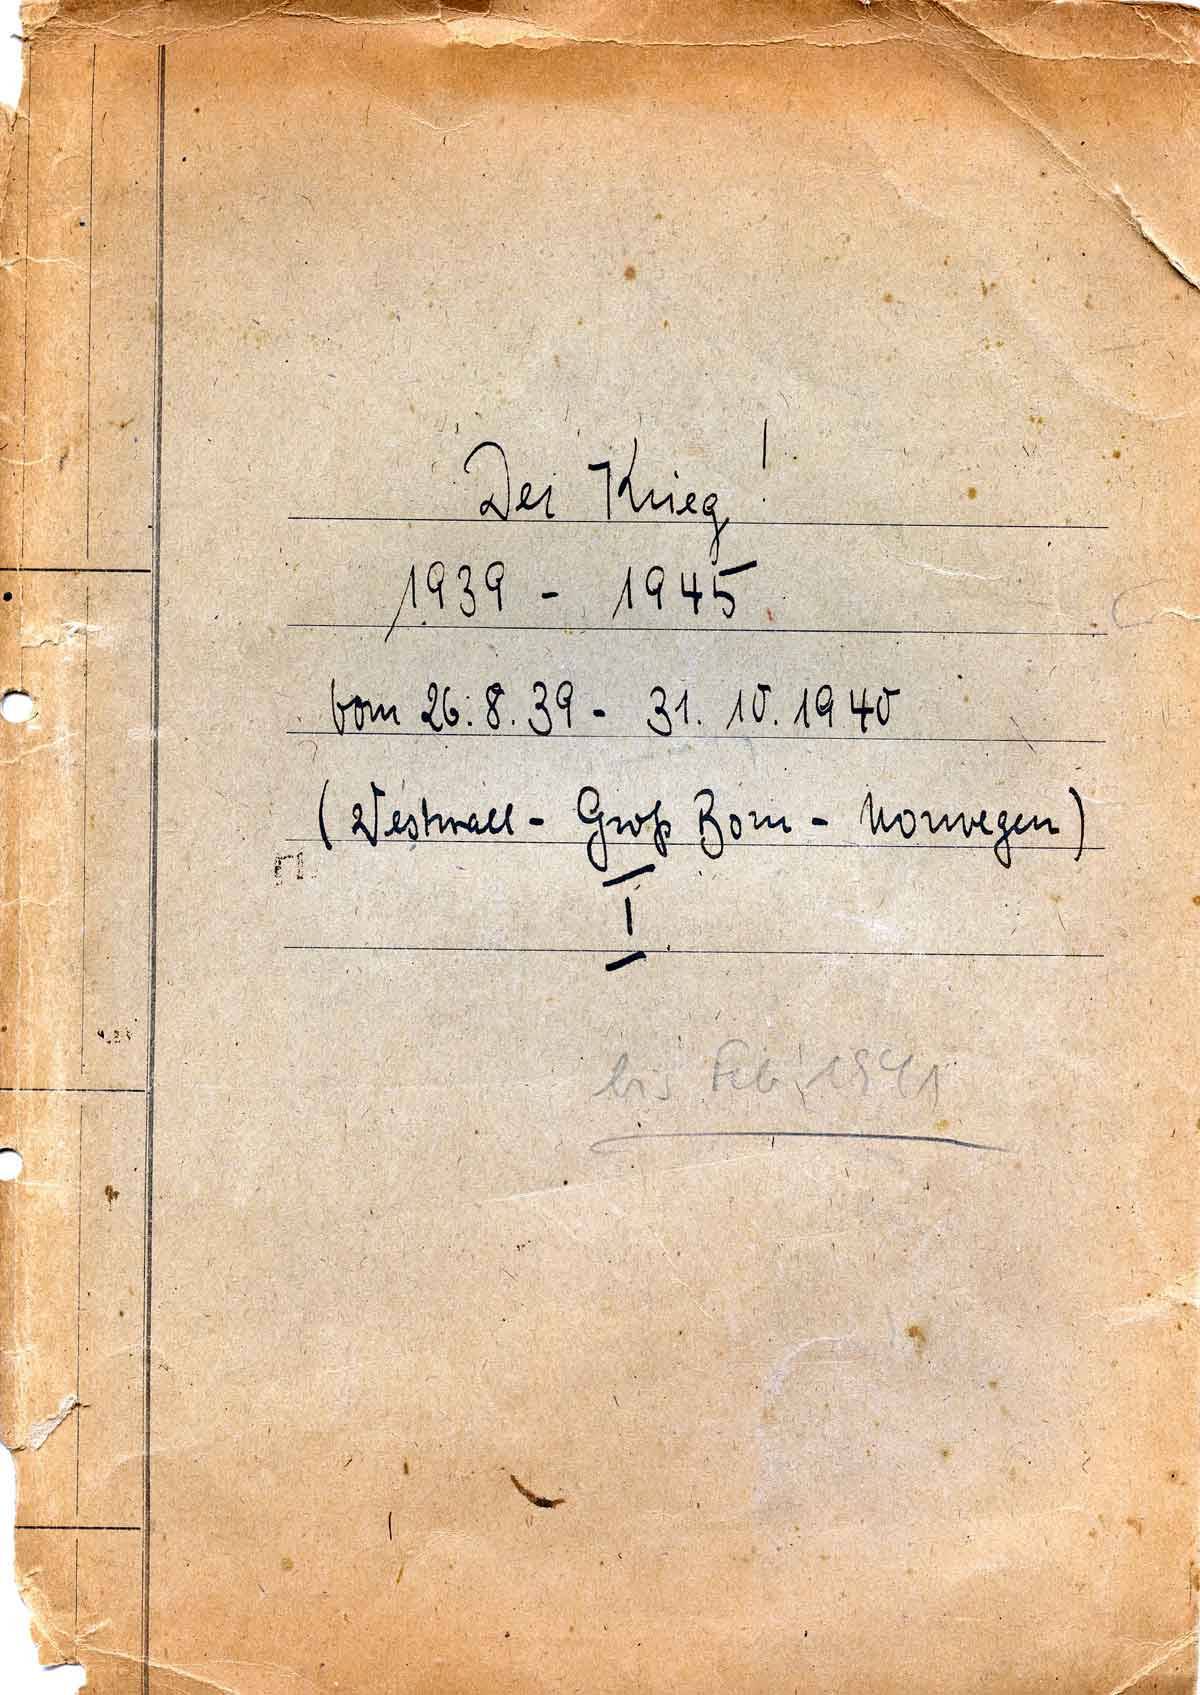 Der Krieg!
1939 - 1945
vom 26.8.39 - 31.10.1940
(Westwall - Groß Born - Norwegen)
I
bis Feb. 1941